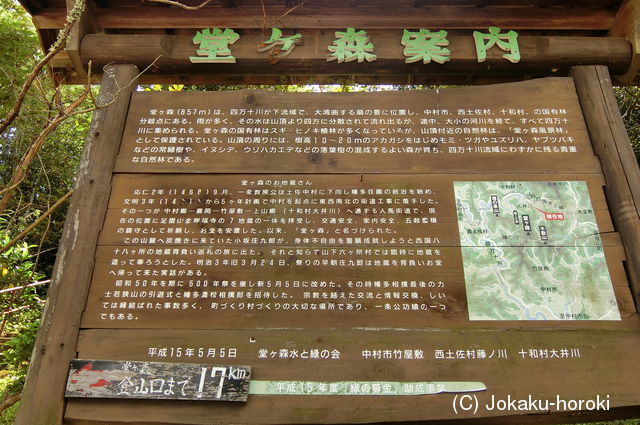 堂ヶ森案内
堂ヶ森(857m)は、四万十川が下流域で、大湾曲する扇の要に位置し、中村市、西土佐村、十和村、の国有林
分岐点にある。雨が多く、その水は山頂より四方に分散されて流れ出るが、途中、大小の河川を経て、すべて四万十
川に集められる。堂ヶ森の国有林はスギ・ヒノキ植林が多くなっているが、山頂付近の自然林は、「堂ヶ森風景林」
として保護されている。山頂の周りには、樹高10~20mのアカガシをはじめモミ・ツガやユズリハ、ヤブツバキ
などの常緑樹や、イヌシデ、クリハカエデなどの落葉樹の混成するよい森が育ち、四万十川流域にわずかに残る貴重
な自然林である。
堂ヶ森のお地蔵さん
応仁2年(1468)9月、一条教房公は土佐中村に下向し幡多荘園の統治を始め、
文明3年(14
から5ヶ年計画で中村を起点に東西南北の街道工事に着手した。
その一つが中村郷ー蕨岡ー竹屋敷ー上山郷(十和村大井川)へ通ずる人馬街道で、現
在の位置に足摺山金剛福寺の7地蔵の一体を拝受し、交通安全、家内安全、五穀豊穣
の鎮守として祈願し、お堂を安置した。以来、「堂ヶ森」と名づけられた。
この山麓へ炭焼きに来ていた小坂庄九郎が、身体不自由を誓願成就しようと西国八
十八ヶ所の地蔵背負い巡礼の旅に出た。それと知らず山下六ヶ村では臨時に地蔵を
造って事なうとした。明治3年旧3月24日、祭りの早朝庄九郎は地蔵を背負いお堂
へ帰って来た実話がある。
昭和50年を期に500年祭を催し新5月5日に改めた。その時幡多相撲最後の力
士若狭山の引退式と幡多農校相撲部を招待した。宗教を越えた交流と情報交換、しい
ては縁結ばれた事数多く、町づくり村づくりの大切な場所であり、一条公功績の一つ
でもある。
現在地
十和村
西土佐村
竹屋敷
中村市
至中村市
平成15年5月5日 堂ヶ森水と緑の会 中村市竹屋敷 西土佐村藤ノ川 十和村大井川
堂ヶ森
登山口まで17km
平成15年度「緑の募金」助成事業
(C) Jokaku-horoki